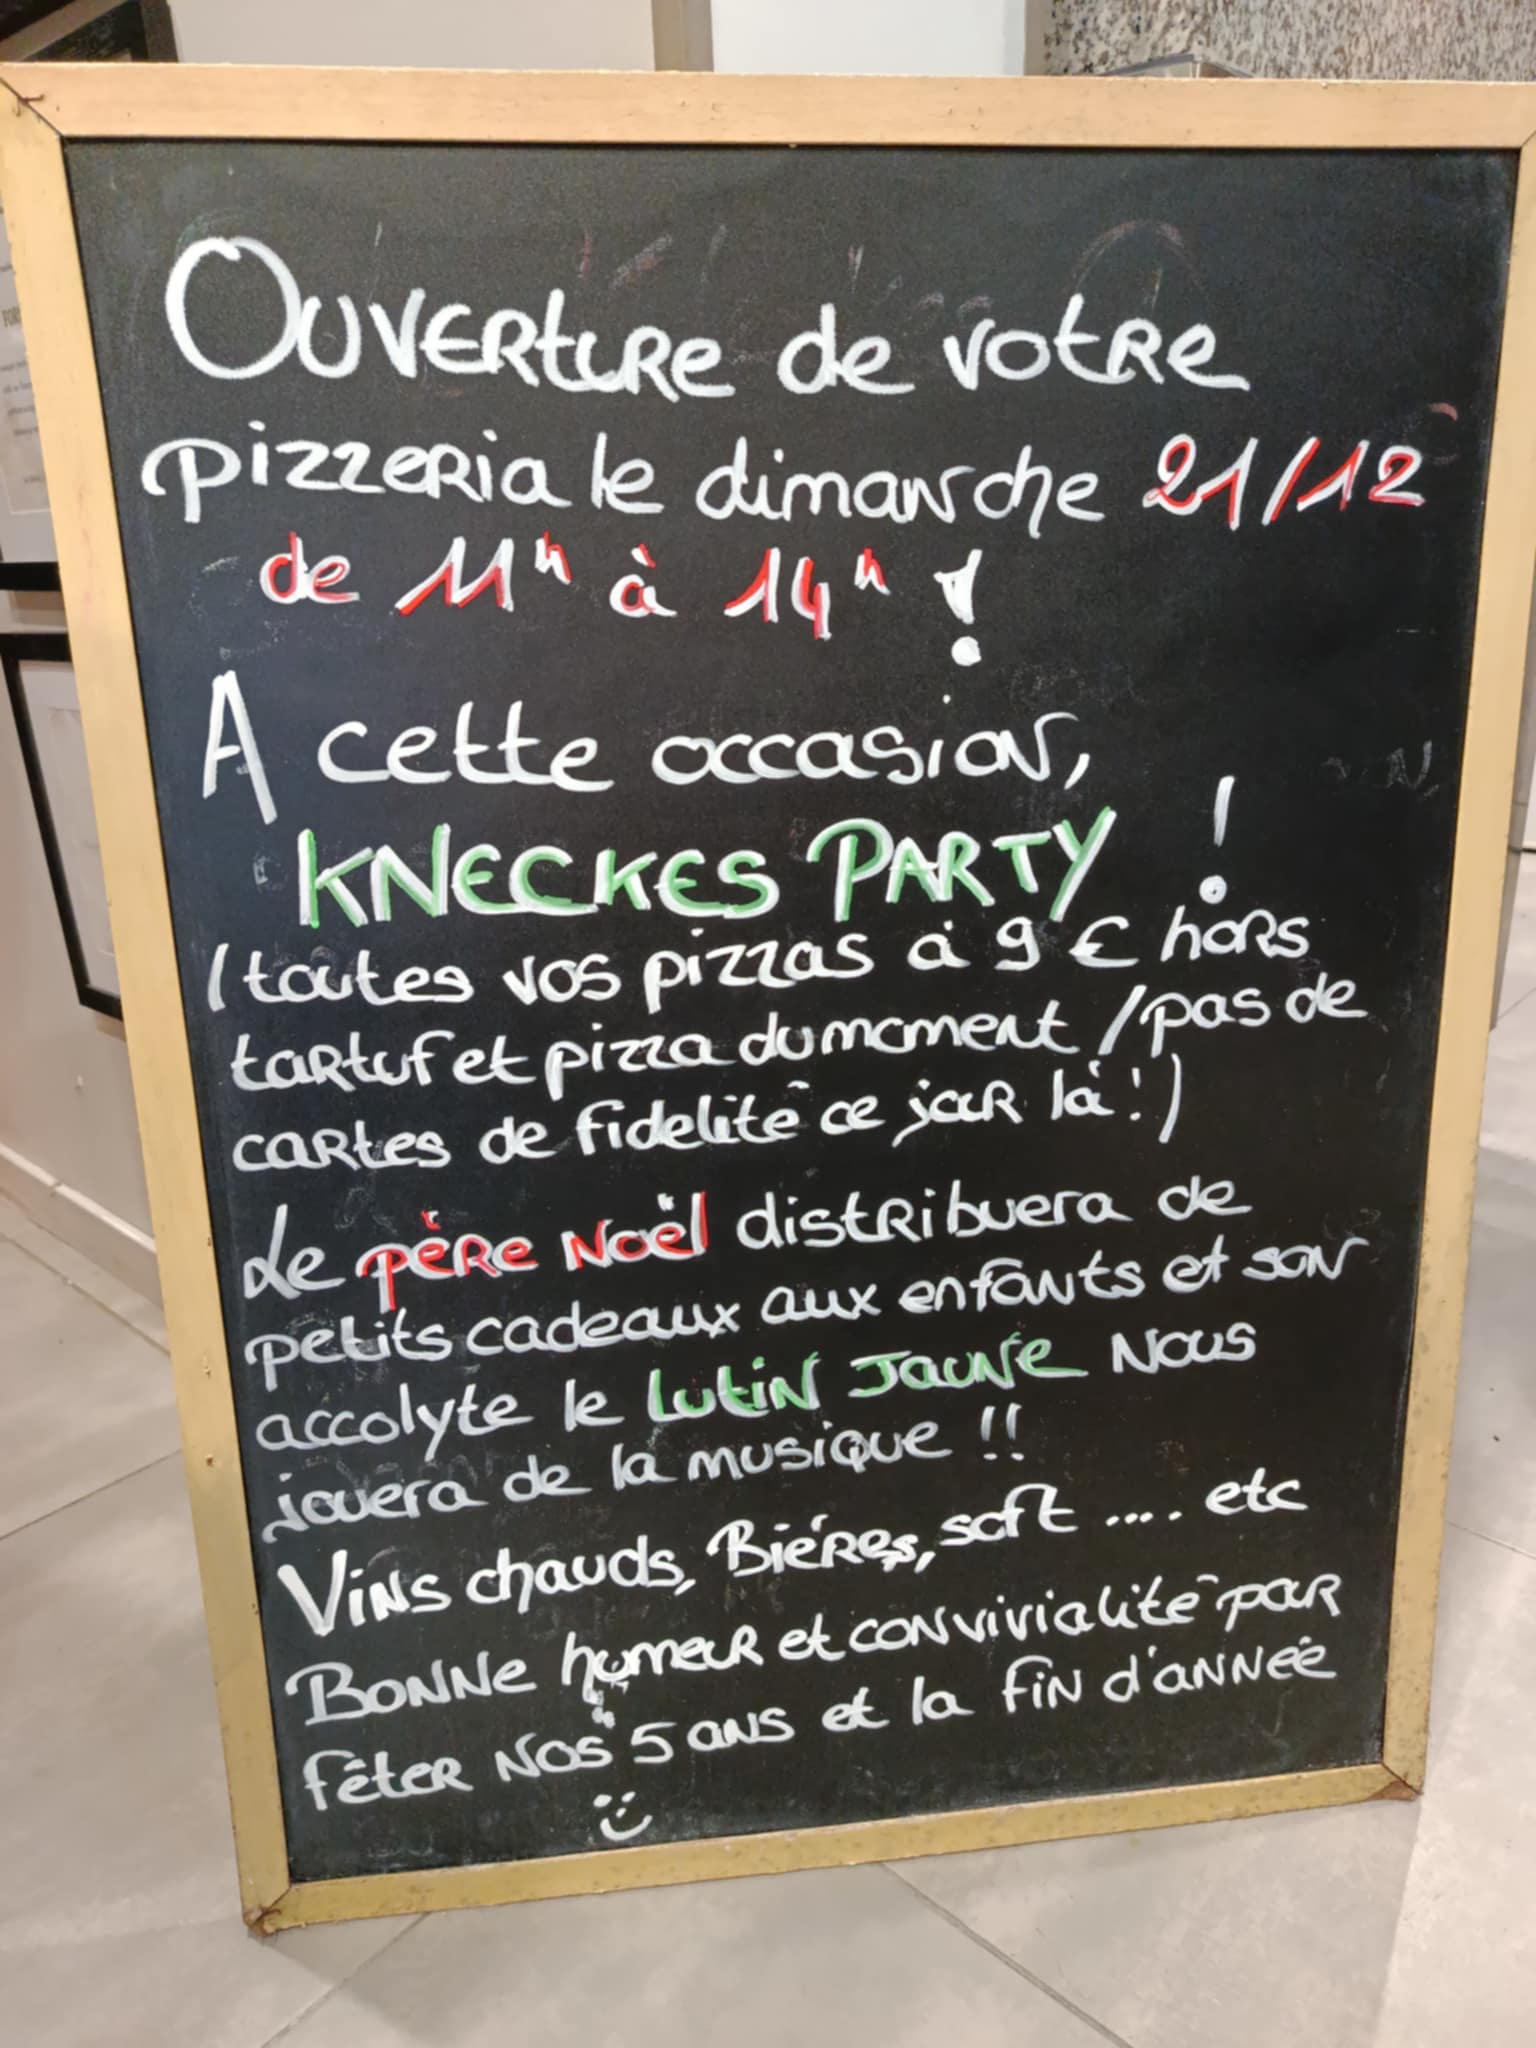 Ouverture de votre
pizzeria le dimanche 21/12
de 11h à 14h !
A cette occasion,
KNECKES PARTY !
(toutes vos pizzas à 9 € hors
tartuf et pizza du moment / pas de
cartes de fidelité ce jour là !)
Le père Noël distribuera de
petits cadeaux aux enfants et son
accolyte le lutin Jaune nous
jouera de la musique !!
Vins chauds, Biéres, soft ..... etc
Bonne humeur et convivialité par
fêter nos 5 ans et la fin d'année